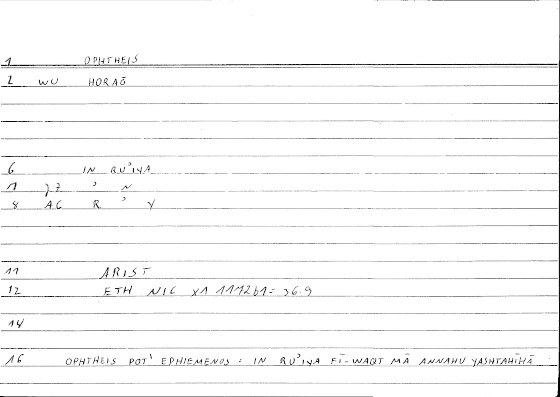 1 OPHTHEIS
2 WU HORAŌ
6 IN RUʾIYA
7 ʾ N
8 AG R ʾ Y
11 ARIST
12 ETH NIC X1 1172b1 =
14
16 OPHTHEIS POT' EPHIEMENOS = IN RUʾIYA FĪ-WAQT MĀ ANNAHU YASHTAHĪHĀ